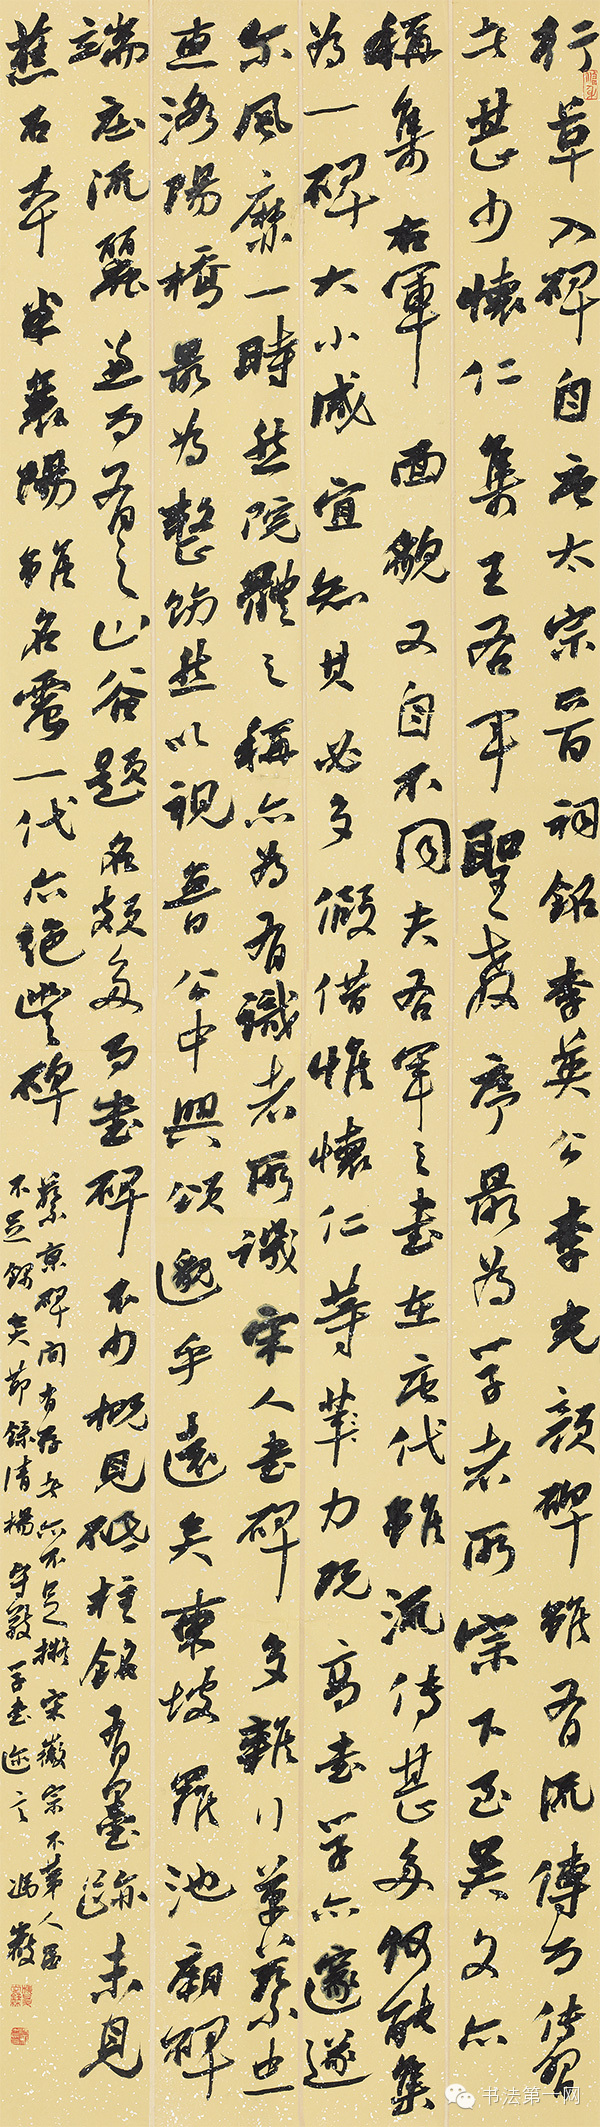 行草入碑自唐太宗晋祠銘李英公李光顔碑雖有流傳而傳習
者甚少懷仁集王右軍聖教序最為學者所宗下至吴文亦
稱集右軍面貌又自不同夫右軍之書在唐代雖流傳甚多何能集
為一碑大小咸宜知其必多假借惟懷仁等筆力既高書學亦邃遂
尔風靡一時然院體之稱亦為有識者所譏宋人書碑多雜行草蔡忠
惠洛陽橋最為整飭然以視魯公中興頌邈乎遠矣東坡羅池廟碑
端庄流麗兼而有之山谷題名頗多而書碑不少概見砥柱銘有墨跡未見
舊石本米襄陽雖名震一代亦絶豐碑
蔡京碑間有存者亦不足擬宋徽宗不第人品
不足録矣節録清楊守敬學書迩言 馮
书法第一网